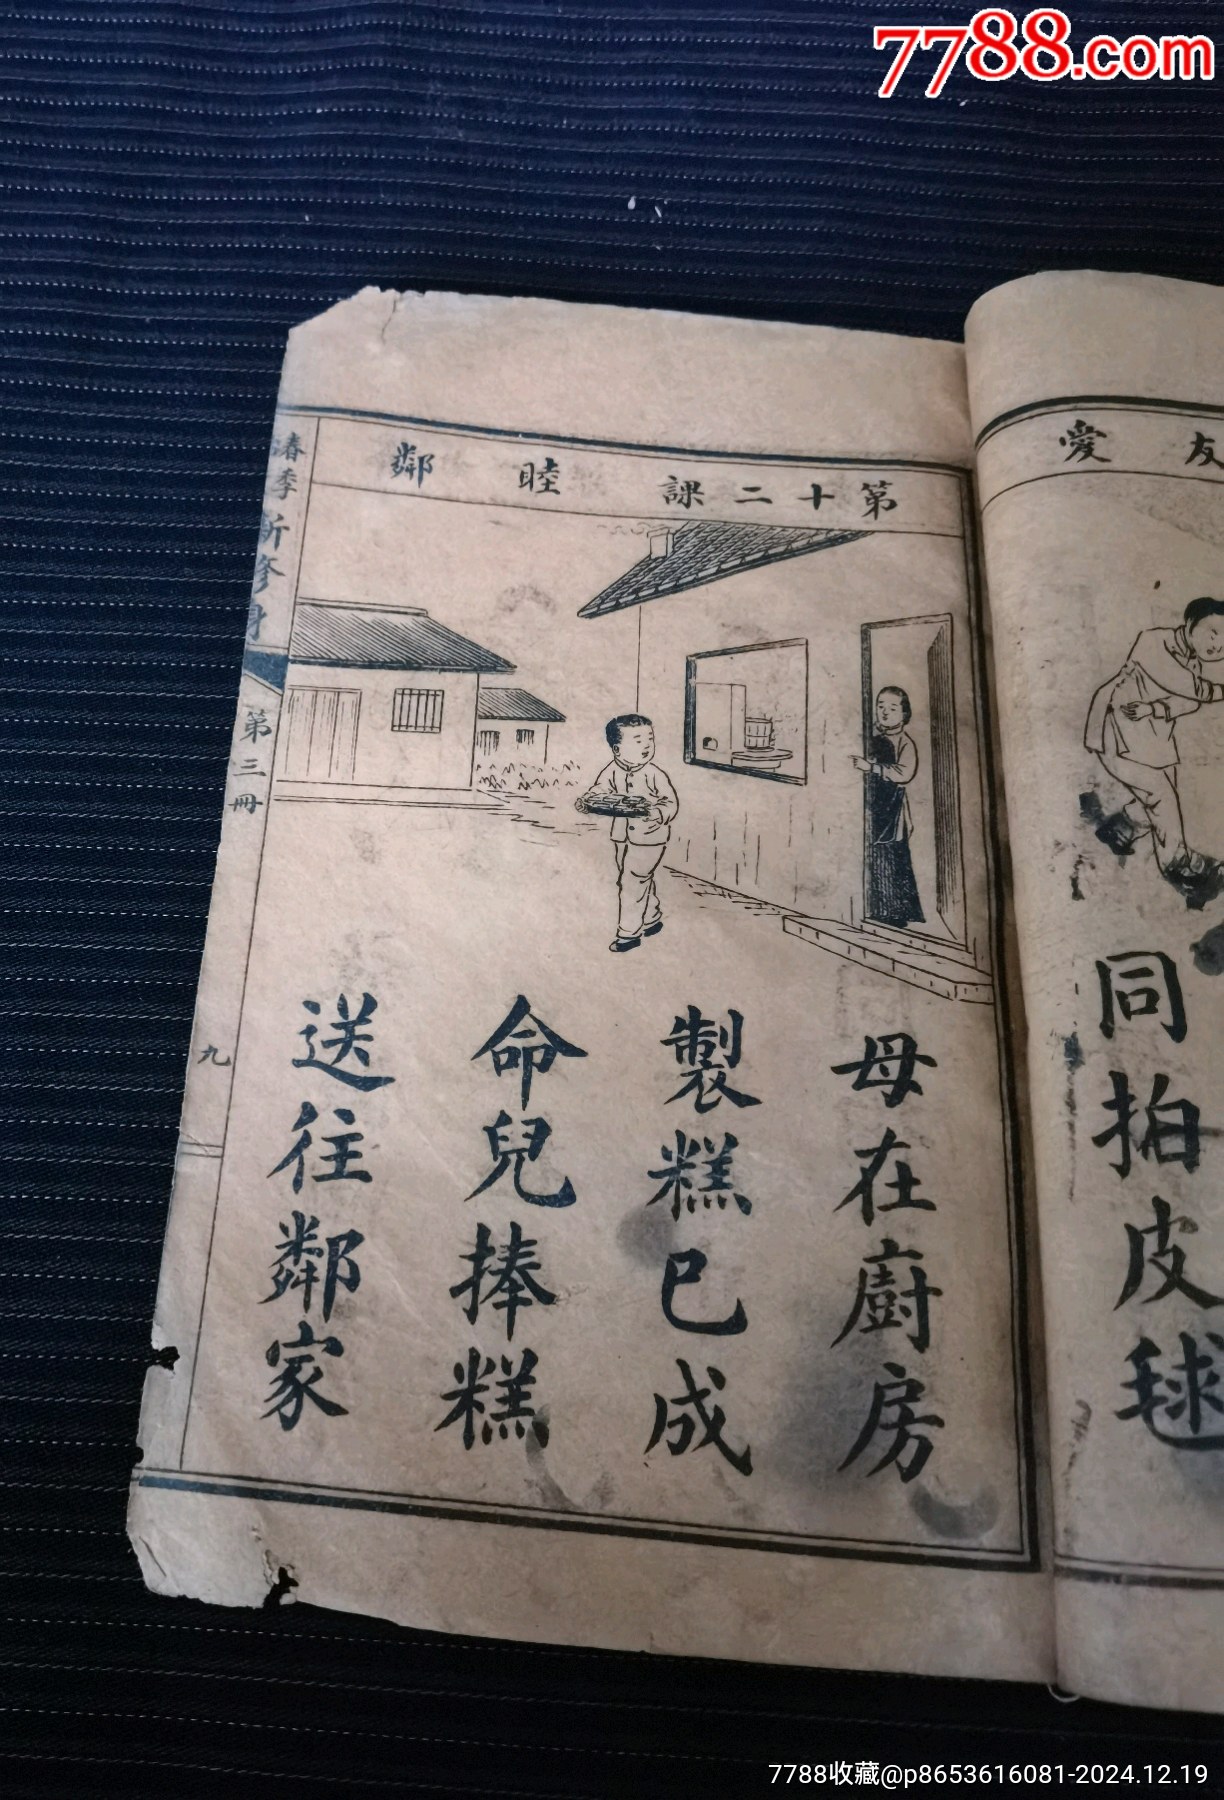 7788.com
友愛
同拍皮毬
第十二課 睦鄰
母在廚房
製糕已成
命兒捧糕
送往鄰家
春季 新修身 第三冊
九
7788收藏@p8653616081-2024.12.19